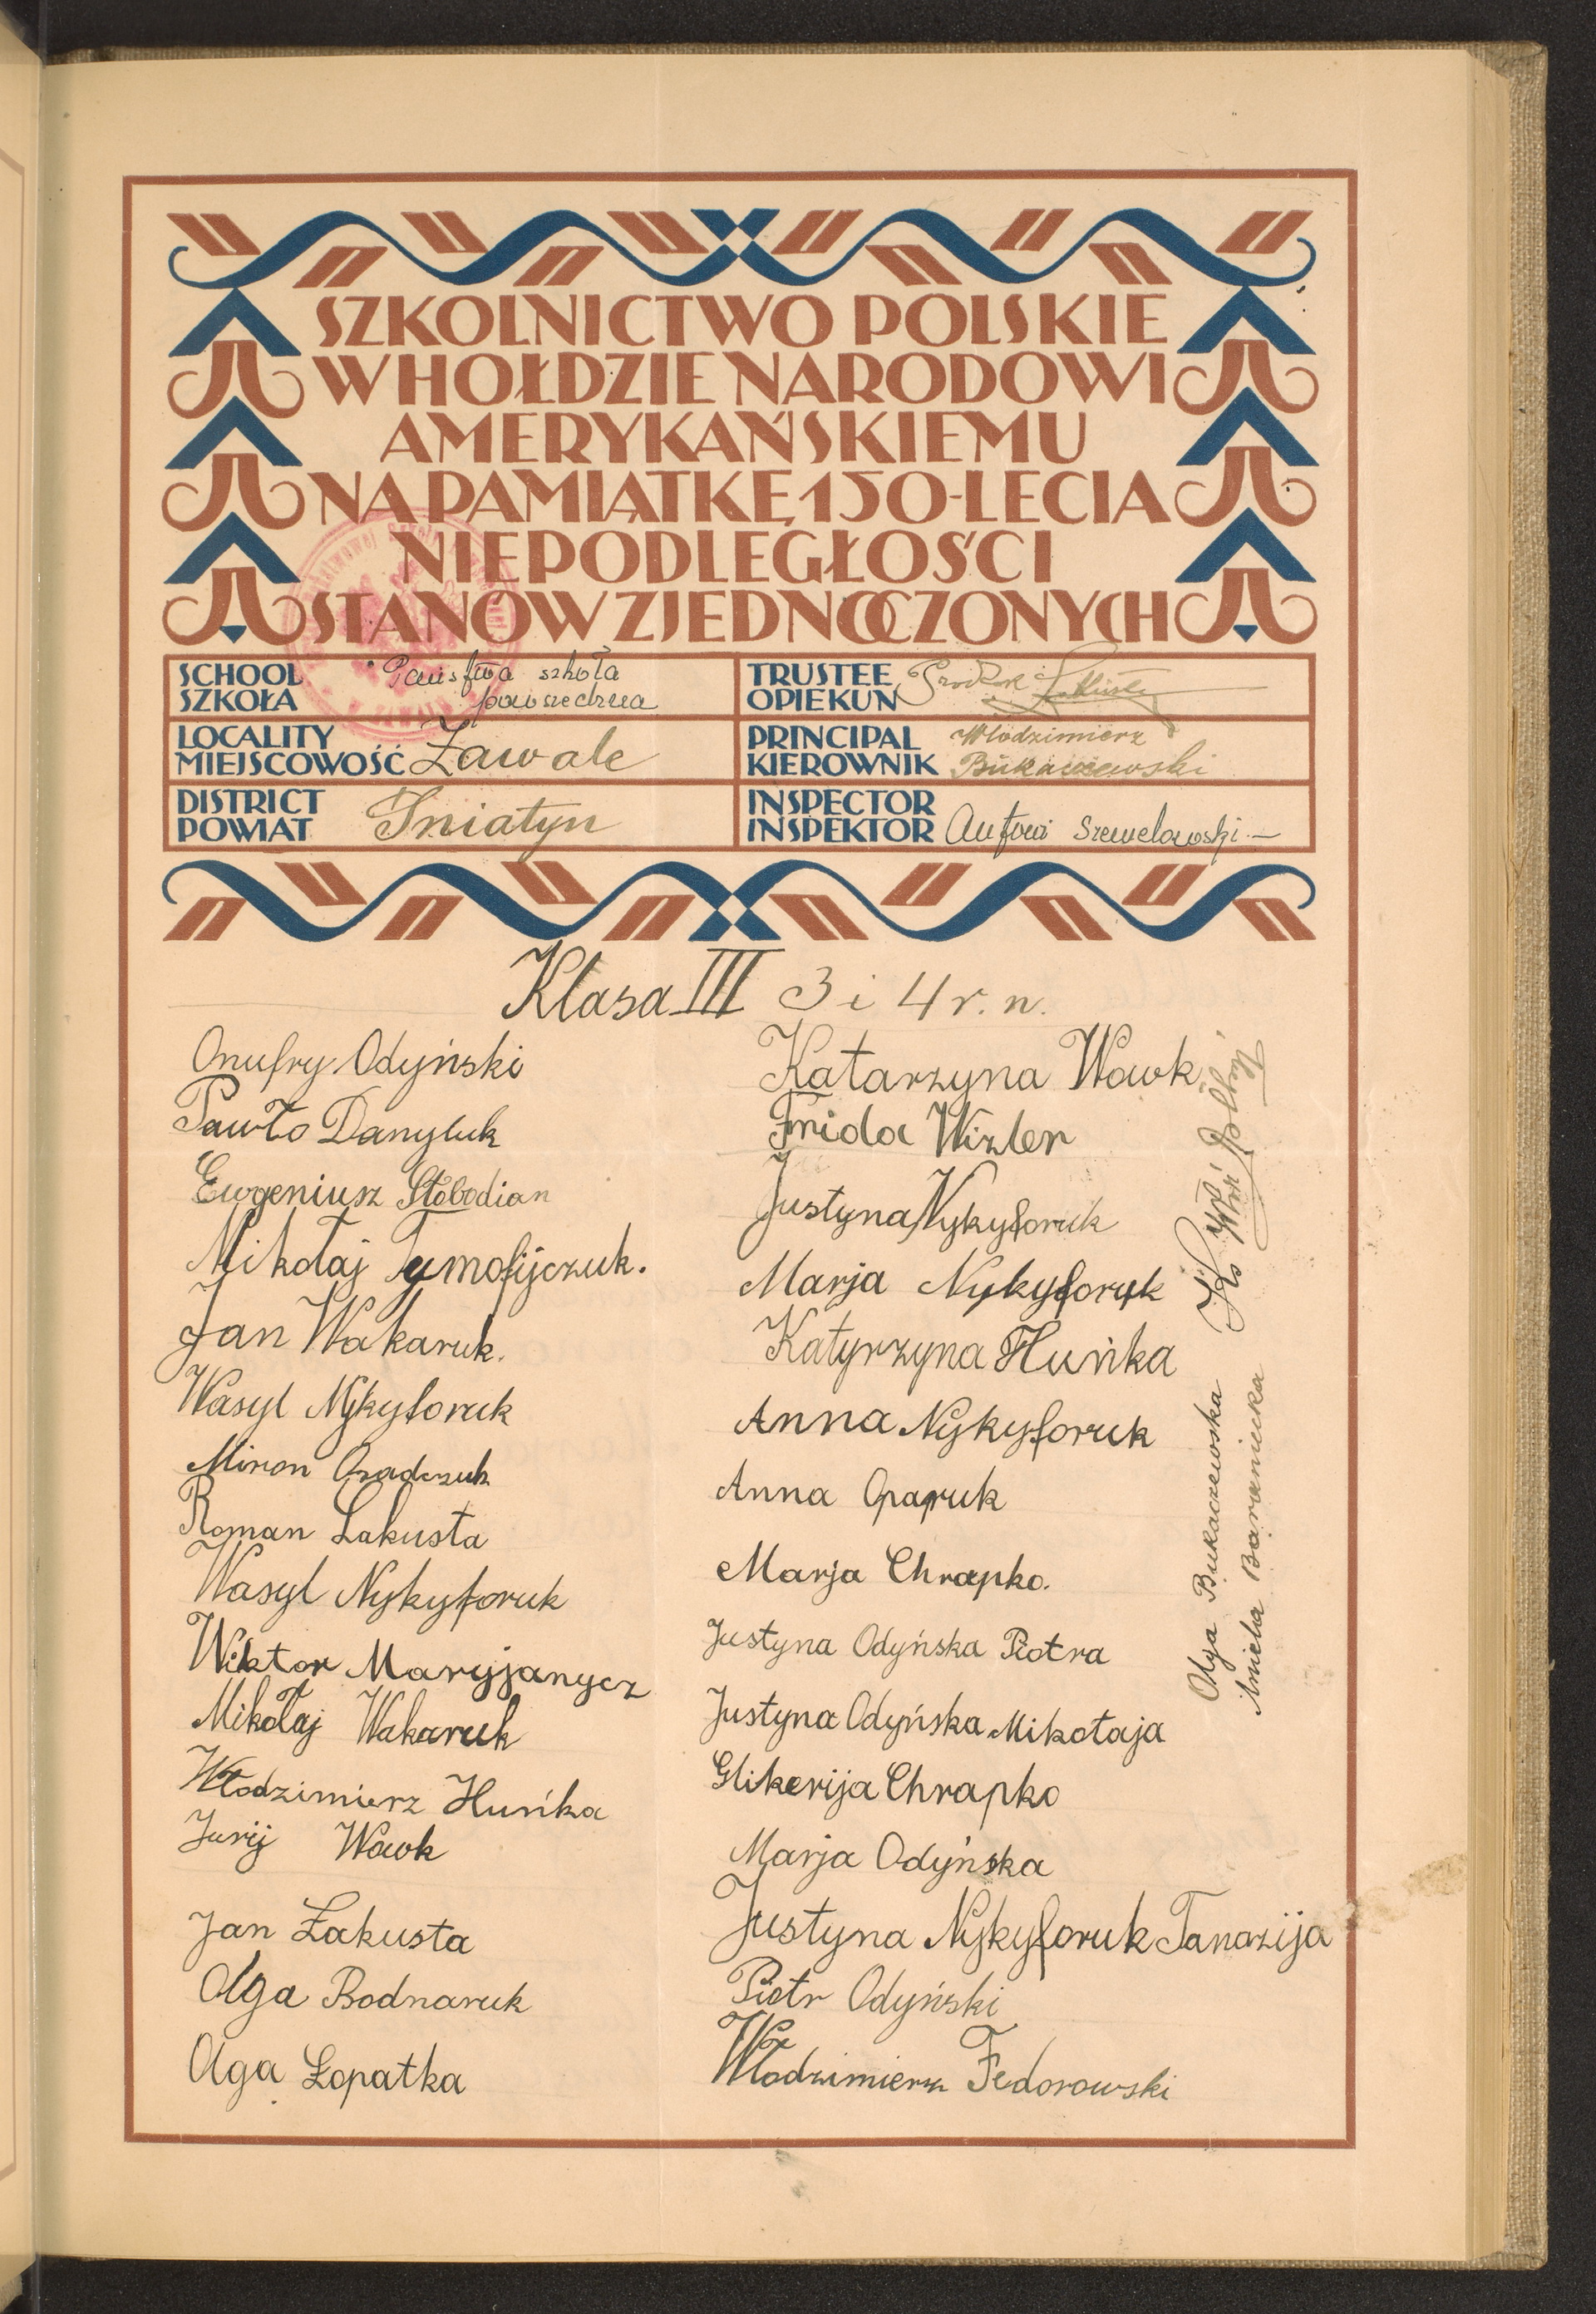 SZKOLNICTWO POLSKIE
W HOŁDZIE NARODOWI
AMERYKAŃSKIEMU
NA PAMIĄTKĘ 150-LECIA
NIEPODLEGŁOŚCI
STANÓW ZJEDNOCZONYCH
SCHOOL
SZKOŁA
Państwa szkoła
powszechna
TRUSTEE
OPIEKUN
LOCALITY
MIEJSCOWOŚĆ Zawale
PRINCIPAL
KIEROWNIK
Włodzimierz
Bukaczewski
DISTRICT
POWIAT Śniatyn
INSPECTOR
INSPEKTOR Antoni
Klasa III 3 i 4 r. n.
Onufry Odyński
Pawło Danyluk
Ewgeniusz Słobodian
Mikołaj Tymofijczuk.
Jan Wakaruk.
Wasyl Nykyforuk
Miron Osadczuk
Roman Łakusta
Wasyl Nykyforuk
Wiktor Maryjanycz
Mikołaj Wakaruk
Włodzimierz Huńka
Jurij Wowk
Jan Łakusta
Olga Bodnaruk
Olga Łopatka
Katarzyna Wowk
Frida Wizler
Justyna Nykyforuk
Marja Nykyforuk
Katyrzyna Huńka
Anna Nykyforuk
Anna Oparuk
Marja Chrapko.
Justyna Odyńska Piotra
Justyna Odyńska Mikołaja
Glikerija Chrapko
Marja Odyńska
Justyna Nykyforuk Tanazija
Piotr Odyński
Włodzimierz Fedorowski
Olga Bukaczewska
Aniela Baraniecka